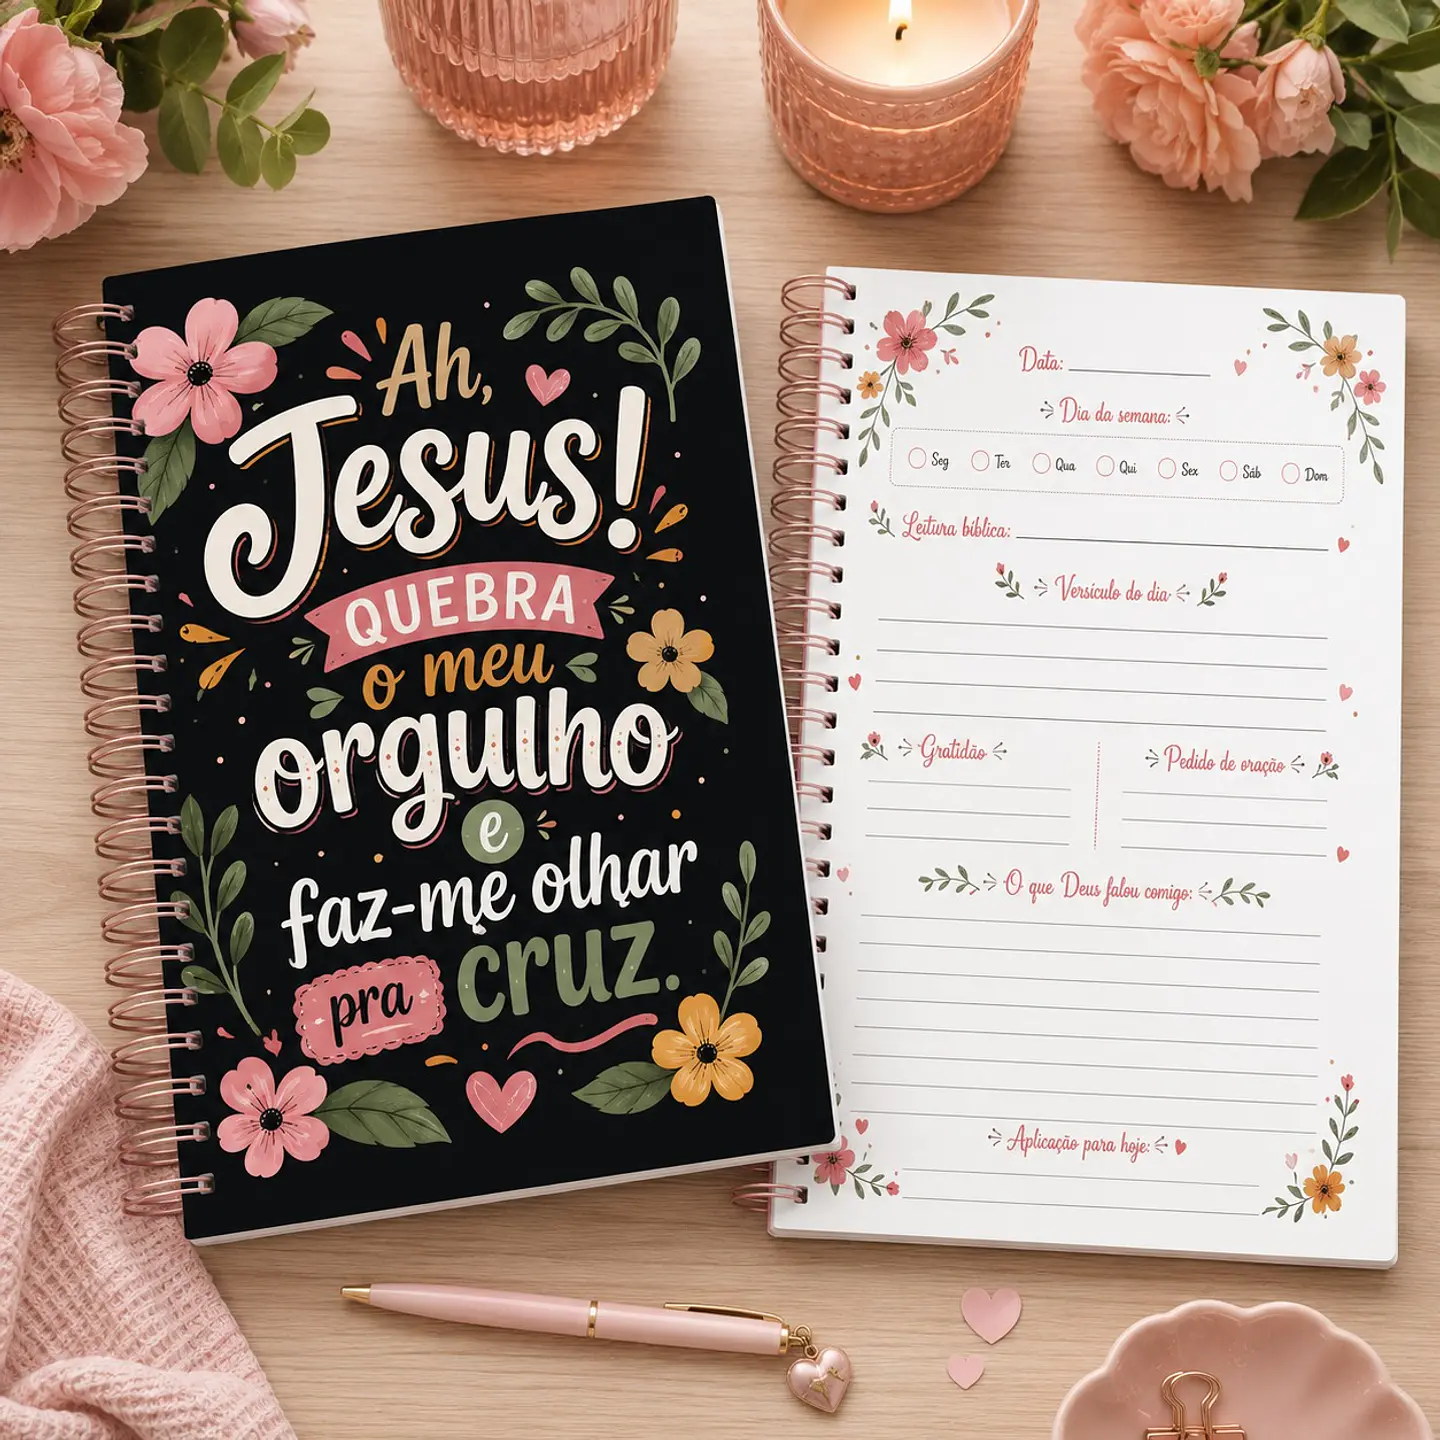 Ah,
Jesus!
QUEBRA
o meu
orgulho
e
faz-me olhar
pra cruz.
Data:
Dia da semana:
Seg Ter Qua Qui Sex Sáb Dom
Leitura bíblica:
Versículo do dia
Gratidão
Pedido de oração
O que Deus falou comigo:
Aplicação para hoje: